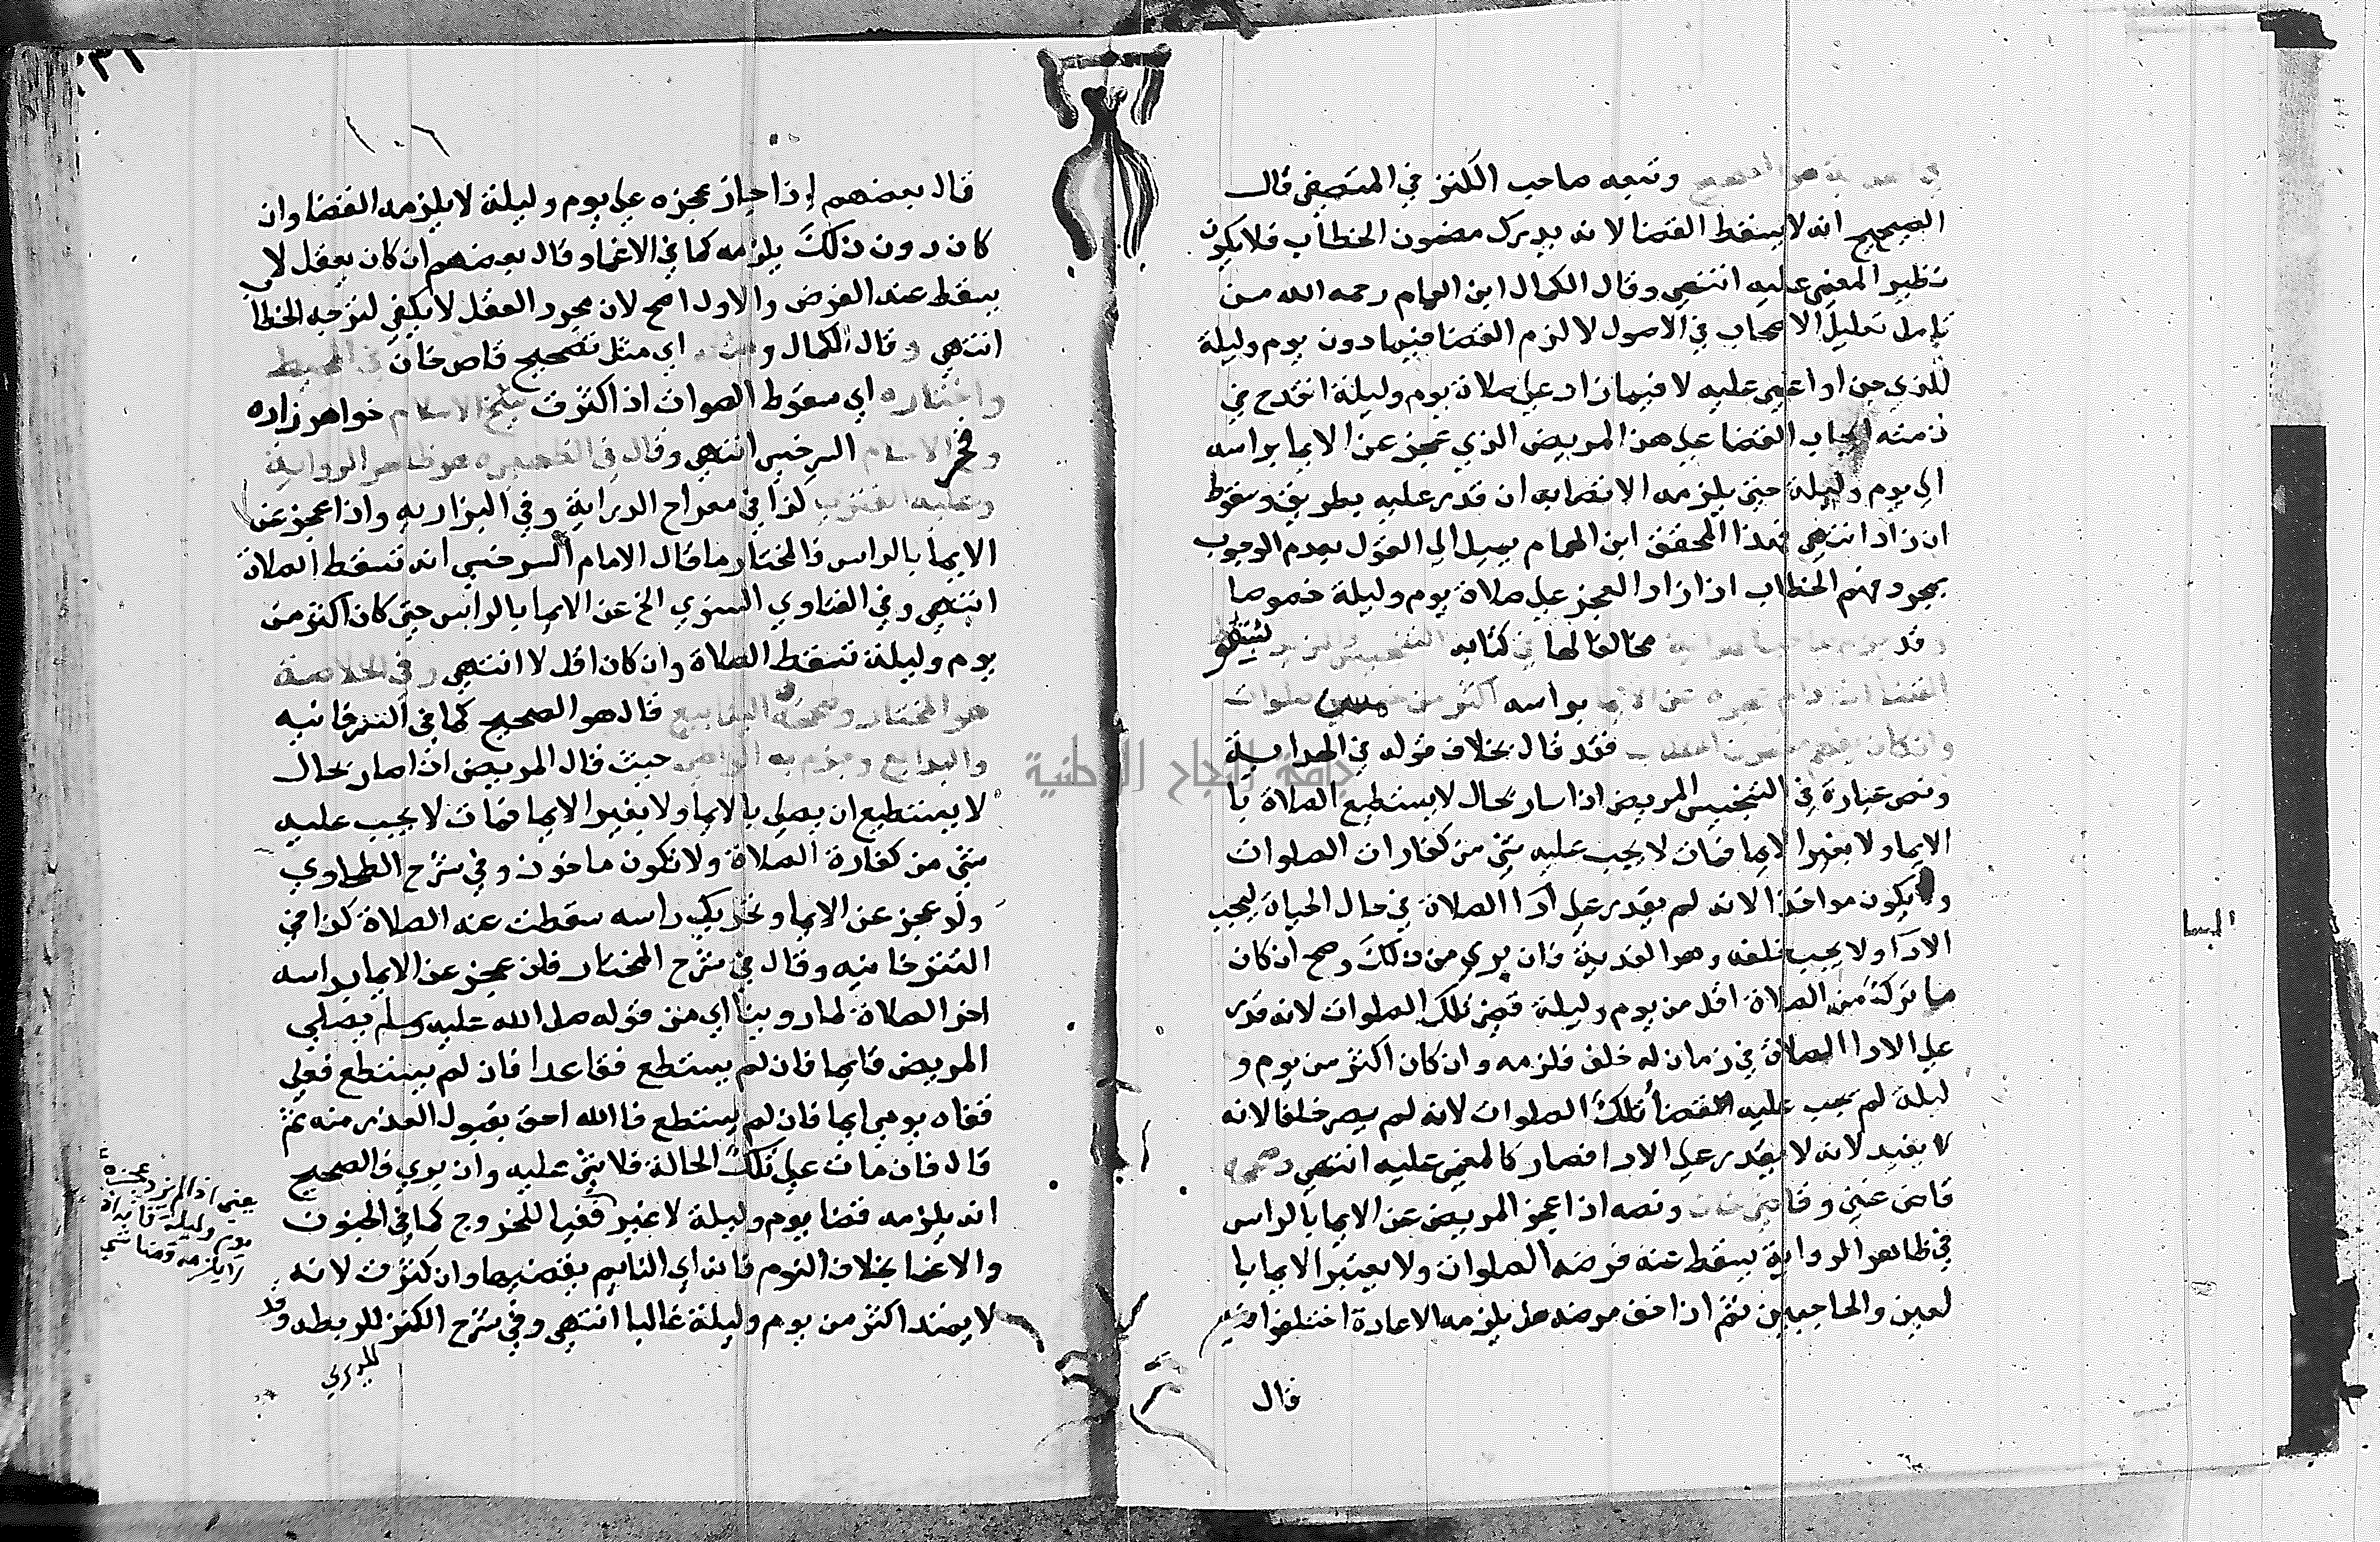 وتبعه صاحب الكنز في المتصفى قال
الصحيح انه لا يسقط القضا لانه يدرك مضمون الخطاب فلا يكون
نظير المغمى عليه انتهى وقال الكمال ابن الهمام رحمه الله من
تامل تعليل الاصحاب في الاصول لا لزم القضا فيما دون يوم وليلة
للذي جن او اغمى عليه لا فيما زاد على صلاة يوم وليلة انقدح في
ذمته ايجاب القضا على هذا المريض الذي عجز عن الايما براسه
الى يوم وليلة حتى يلزمه الايصابه ان قدر عليه بطريق وسقوط
ان زاد انتهى فهذا المحقق ابن الهمام يميل الى القول بعدم الوجوب
بمجرد فهم الخطاب اذا زاد العجز على صلاة يوم وليلة خصوصا
وقد مخالفا لها في كتابه
براسه اكثر من خمس صلوات
وان كان فقد قال بخلاف قوله في الهداية
ونص عبارة في التجنيس المريض اذا سار بحال لا يستطيع الصلاة با
الايما ولا بغير الايما فمات لا يجب عليه شي من كفارات الصلوات
ولا يكون مواخذا لانه لم يقدر على ادا الصلاة في حال الحياة ليجب
الادآ ولا يجب خلفه وهو الفدية فان بري من ذلك وصح ان كان
ما تركه من الصلاة اقل من يوم وليلة قضى تلك الصلوات لانه قدر
على الادا الصلاة في زمان له خلف فلزمه وان كان اكثر من يوم و
ليلة لم يجب عليه القضا تلك الصلوات لانه لم يصر خلفا لانه
لا يفيد لانه لا يقدر على الادا فصار كالمغمى عليه انتهى
قاضى غنى وقاضي خان ونصه اذا عجز المريض عن الايما بالراس
في ظاهر الرواية يسقط عنه فرضه الصلوات ولا يعتبر الايما با
لعين والحاجبين ثم اذا خف مرضه هل يلزمه الاعادة اختلفوا فيه
قال
البسا
١٠٦
قال بعضهم اذا جاز عجزه على يوم وليلة لا يلزمه القضا وان
كان دون ذلك يلزمه كما في الاغماء وقال بعضهم ان كان يعقل لا
يسقط عنه الفرض والاول اصح لان مجرد العقل لا يكفي لتوجه الخطا
انتهى وقال الكمال ومثله اي مثل تصحيح قاض خان في المحيط
واختاره اي سقوط الصوات اذ اكثرت شيخ الاسلام خواهر زاده
وفخر الاسلام السرخسي انتهى وقال في الظهيريه هو ظاهر الرواية
وعليه الفتوى كذا في معراج الدراية وفي البزازيه واذا عجز عن
الايما بالراس فالمختار ما قال الامام السرخسي انه تسقط الصلاة
انتهى وفي الفتاوي السنوي الخ عن الايما بالراس حتى كان اكثر من
يوم وليلة تسقط الصلاة وان كان اقل لا انتهى وفي الخلاصة
هو المختار وصححه في الينابيع قال هو الصحيح كما في التترخانيه
والبدايع وجزم به حيث قال المريض اذا صار بحال
لا يستطيع ان يصلي بالايما ولا بغير الايما فمات لا يجب عليه
شي من كفارة الصلاة ولا تكون ماخوذ وفي شرح الطحاوي
ولو عجز عن الايما وتحريك راسه سقطت عنه الصلاة كذا في
التترخانيه وقال في شرح المختار فان عجز عن الايما براسه
اخر الصلاة لما روينا اي من قوله صلى الله عليه وسلم يصلي
المريض قايما فان لم يستطع فقاعدا فان لم يستطع فعلى
قفاه يومي ايما فان لم يستطع فالله احق بقبول العذر منه ثم
قال فان مات على تلك الحالة فلا شي عليه وان بري فالصحيح
انه يلزمه قضا يوم وليلة لا غير نفيا للحروج كما في الجنون
والاغما بخلاف النوم فانه اي النايم يقضيها وان كثرت لانه
لا يمتد اكثر من يوم وليلة غالبا انتهى وفي شرح الكنز للربطه وقد
يعني اذا لم يزد عجزه
يوم وليلة
لا يلزمه قضا شي
جامعة النجاح الوطنية